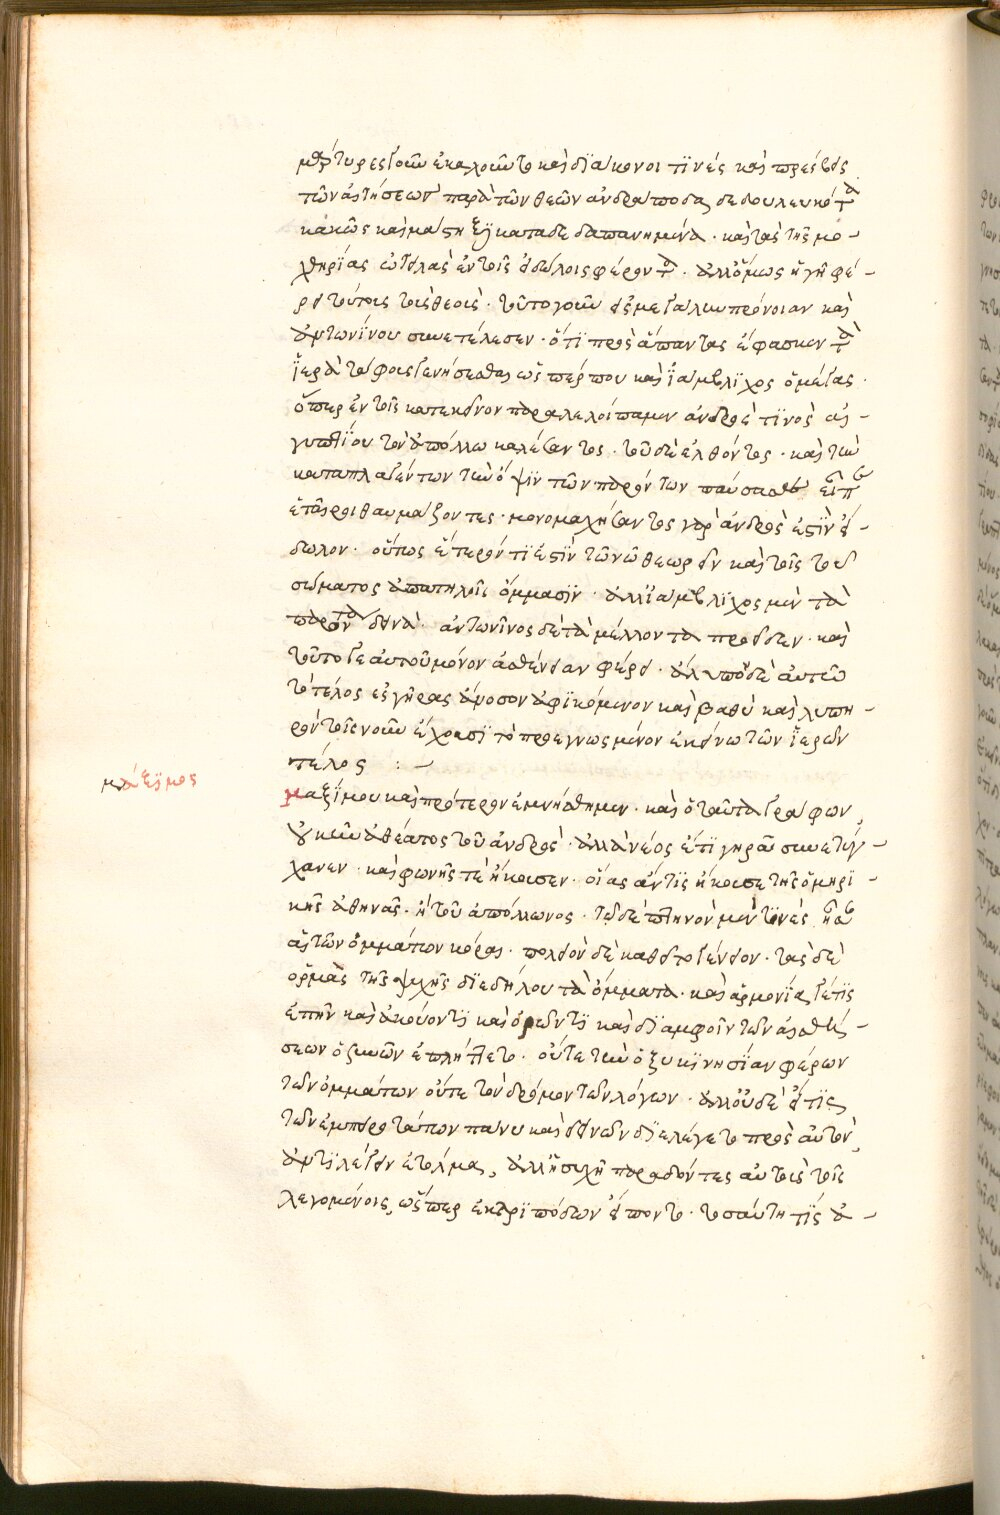 μάρτυρες γοῦν ἐκαλοῦντο καὶ διάκονοί τινες καὶ πρέσβεις
τῶν αἰτήσεων παρὰ τῶν θεῶν ἀνδράποδα δεδουλευκότα
κακῶς καὶ μάστιξι καταδεδαπανημένα · καὶ τὰς τῆς μο-
χθηρίας ὠτειλὰς ἐν τοῖς εἰδώλοις φέροντα · ἀλλ' ὅμως ἡ γῆ φέ-
ρει τούτους τοὺς θεούς · τοῦτο γοῦν εἰς μεγάλην πρόνοιαν καὶ
ἀντωνίνου συνετέλεσεν · ὅτι πρὸς ἅπαντας ἔφασκεν τὰ
ἱερὰ τάφους γενήσεσθαι ὥσπερ που καὶ ἰάμβλιχος ὁ μέγας ·
ὅπερ ἐν τοῖς κατ' ἐκεῖνον παραλελοίπαμεν ἀνδρός τινὸς αἰ-
γυπτίου τὸν ἀπόλλω καλέσαντος · τοῦ δὲ ἐλθόντος · καὶ τὴν
καταπλαγέντων τὴν ὄψιν τῶν παρόντων παύσασθε εἶπεν
ἑταῖροι θαυμάζοντες · μονομαχήσαντος γὰρ ἀνδρὸς ἐστὶν εἴ-
δωλον · οὕτως ἕτερόν τι ἐστὶν τῷ νῷ θεωρεῖν καὶ τοῖς τοῦ
σώματος ἀπατηλοῖς ὄμμασιν · ἀλλ' ἰάμβλιχος μὲν τὰ
παρόντα δεινὰ · ἀντωνῖνος δὲ τὰ μέλλοντα προεῖδεν · καὶ
τοῦτό γε αὐτοῦ μόνον ἀσθένειαν φέρει · ἄλυπον δὲ αὐτῷ
τὸ τέλος εἰς γῆρας ἄνοσον ἀφικόμενον καὶ βαθύ καὶ λυπη-
ρὸν τοῖς νοῦν ἔχουσι τὸ προεγνωσμένον ἐκείνῳ τῶν ἱερῶν
τέλος : -
μάξιμος
μαξίμου καὶ πρότερον ἐμνήσθημεν · καὶ ὁ ταῦτα γράφων,
οὐκ ἦν ἀθέατος τοῦ ἀνδρός · ἀλλὰ νέος ἔτι γηραιῷ συνετύγ-
χανεν · καὶ φωνῆς τε ἤκουσεν · οἵας ἄν τις ἤκουσε τῆς ὁμηρι-
κῆς ἀθηνᾶς · ἢ τοῦ ἀπόλλωνος · τῷ δὲ πτηνὸν μέν τινες ἦσαν
αἱ τῶν ὀμμάτων κόραι · πολιὸν δὲ καθεῖτο γένειον · τὰς δὲ
ὁρμὰς τῆς ψυχῆς διεδήλου τὰ ὄμματα · καὶ ἁρμονία γέ τις
ἐπῆν καὶ ἀκούοντι καὶ ὁρῶντι καὶ δι' ἀμφοῖν τῶν αἰσθή-
σεων ὁ συνὼν ἐπλήττετο · οὔτε τὴν ὀξυκινησίαν φέρων
τῶν ὀμμάτων οὔτε τὸν δρόμον τῶν λόγων · ἀλλ' οὐδὲ εἴ τις
τῶν ἐμπειροτάτων πάνυ καὶ δεινῶν διελέγετο πρὸς αὐτὸν,
ἀντιλέγειν ἐτόλμα, ἀλλ' ἡσυχῆ παραδόντες αὑτοὺς τοῖς
λεγομένοις, ὥσπερ ἐκ τριπόδων εἵποντο · τοσαύτη τις ἀ-